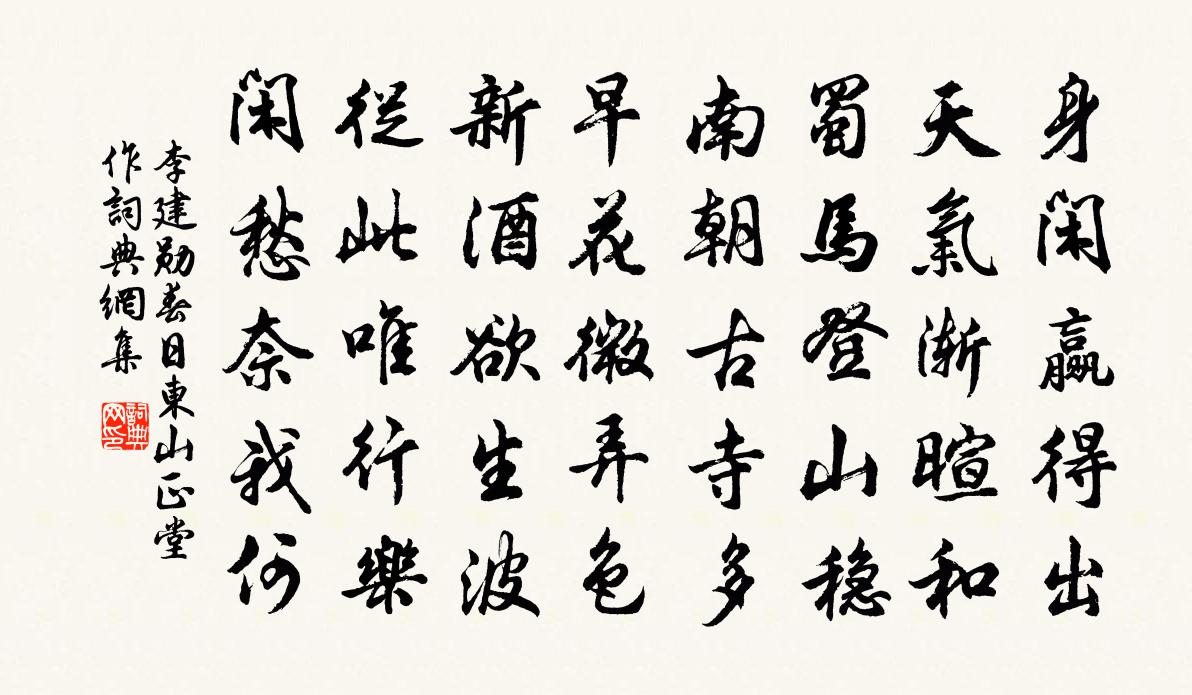 身閑贏得出
天氣漸暄和
蜀馬登山穩
南朝古寺多
早花微弄色
新酒欲生波
從此唯行樂
閑愁奈我何
李建勋春日東山正堂
作詞典網集
詞典
网印